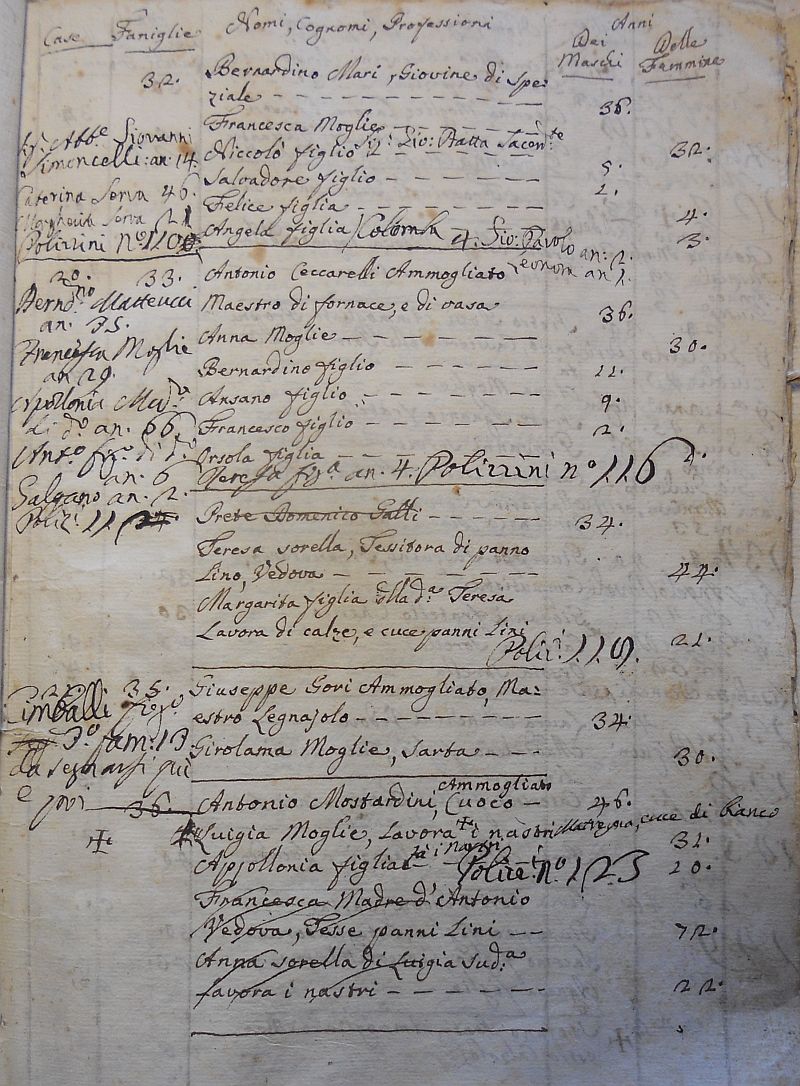 Case Famiglie Nomi, Cognomi, Professioni Anni
Dei Maschi Delle Femmine
32. Bernardino Mari, Giovine di Spe-
ziale 36.
Francesca Moglie 32.
Abb.e Giovanni
Simoncelli: an: 14
Niccolò figlio 5.
Caterina Serva 46.
Salvadore figlio 2.
Margherita Serva 21
Felice figlia 4.
Polizzini nº 110
Angela figlia Colomba 4. Gio: Pavolo an: 2. 3.
Leonora an 1.
20. 33. Antonio Ceccarelli Ammogliato
Maestro di fornace, e di vasa 36.
Bern.no Matteucci
an. 35.
Anna Moglie 30.
Francesca Moglie
an 29.
Bernardino figlio 11.
Apollonia
an. 66
Ansano figlio 9.
Francesco figlio 2.
Ant.o
an. 6
Orsola figlia
Teresa fig.a an. 4. Polizzini nº 116
Galgano an. 2.
Poliz:
Prete Domenico Galli 34.
Teresa sorella, Tessitora di panno
Lino, Vedova 44.
Margarita figlia della d.a Teresa
Lavora di calze, e cuce panni Lini 21.
Poliz: 119.
35. Giuseppe Gori Ammogliato, Ma=
estro Legnajolo 34.
Cimballi
3.o fam: 13
Girolama Moglie, Sarta 30.
da segnarsi più
e
36. Antonio Mostardini, Ammogliato Cuoco 46.
Luigia Moglie, Lavora i nastri cuce di bianco 31.
Appollonia figlia i nastri Polize: Nº 123 10.
Francesca Madre d'Antonio
Vedova, Tesse panni Lini 72.
Anna sorella di Luigia Sud.a
Lavora i nastri 22.